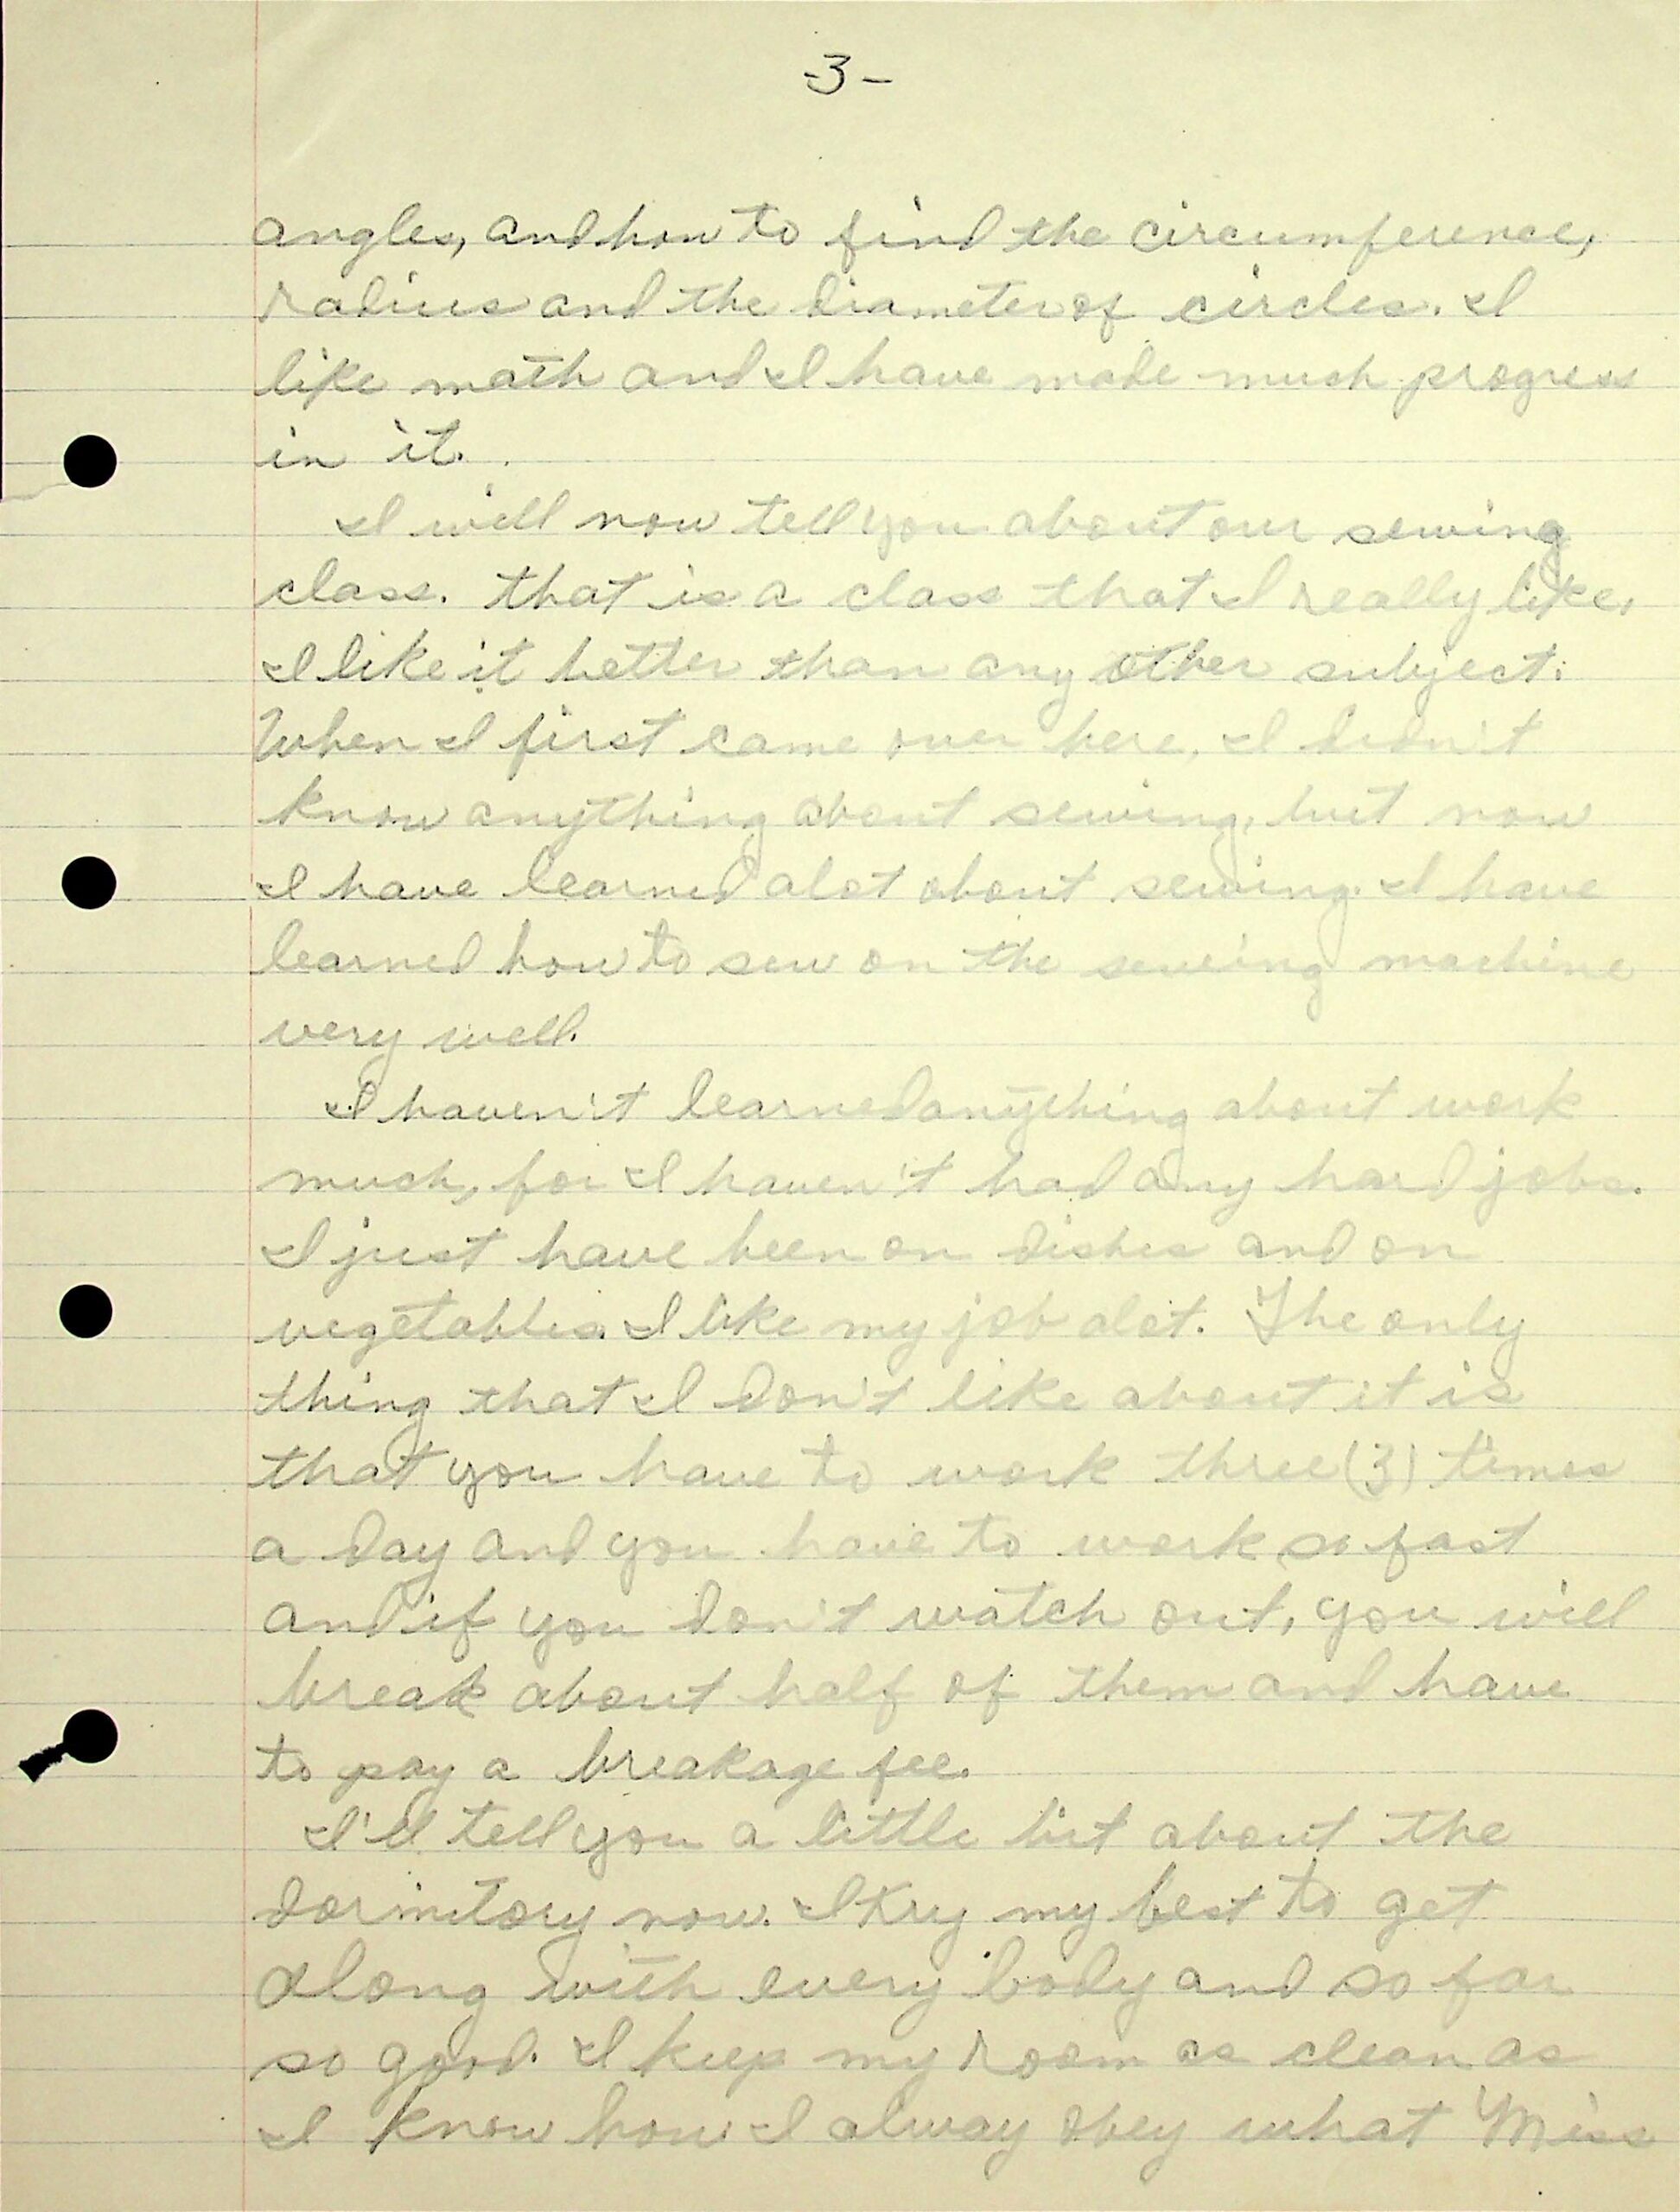 -3-
angles, and how to find the circumference,
radius and the diameter of circles. I
like math and I have made much progress
in it.
I will now tell you about our sewing
class. that is a class that I really like.
I like it better than any other subject.
When I first came over here, I didn't
know anything about sewing, but now
I have learned alot about sewing. I have
learned how to sew on the sewing machine
very well.
I haven't learned anything about work
much, for I haven't had any hard jobs.
I just have been on dishes and on
vegetables. I like my job alot. The only
thing that I don't like about it is
that you have to work three (3) times
a day and you have to work so fast
and if you don't watch out, you will
break about half of them and have
to pay a breakage fee.
I'll tell you a little bit about the
dormitory now. I try my best to get
along with every body and so far
so good. I keep my room as clean as
I know how I alway obey what Miss